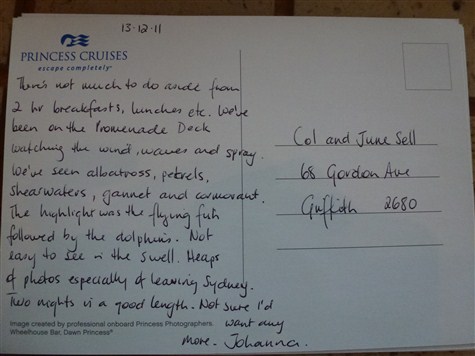 13.12.11
PRINCESS CRUISES
escape completely
There's not much to do aside from
2 hr breakfasts, lunches etc. We've
been on the Promenade Deck
watching the wind, waves and spray.
We've seen albatross, petrels,
shearwaters, gannet and cormorant.
The highlight was the flying fish
followed by the dolphins. Not
easy to see in the swell. Heaps
of photos especially of leaving Sydney.
Two nights is a good length. Not sure I'd
want any
more. Johanna.
Image created by professional onboard Princess Photographers.
Wheelhouse Bar, Dawn Princess®
Col and June Sell
68 Gordon Ave
Griffith 2680